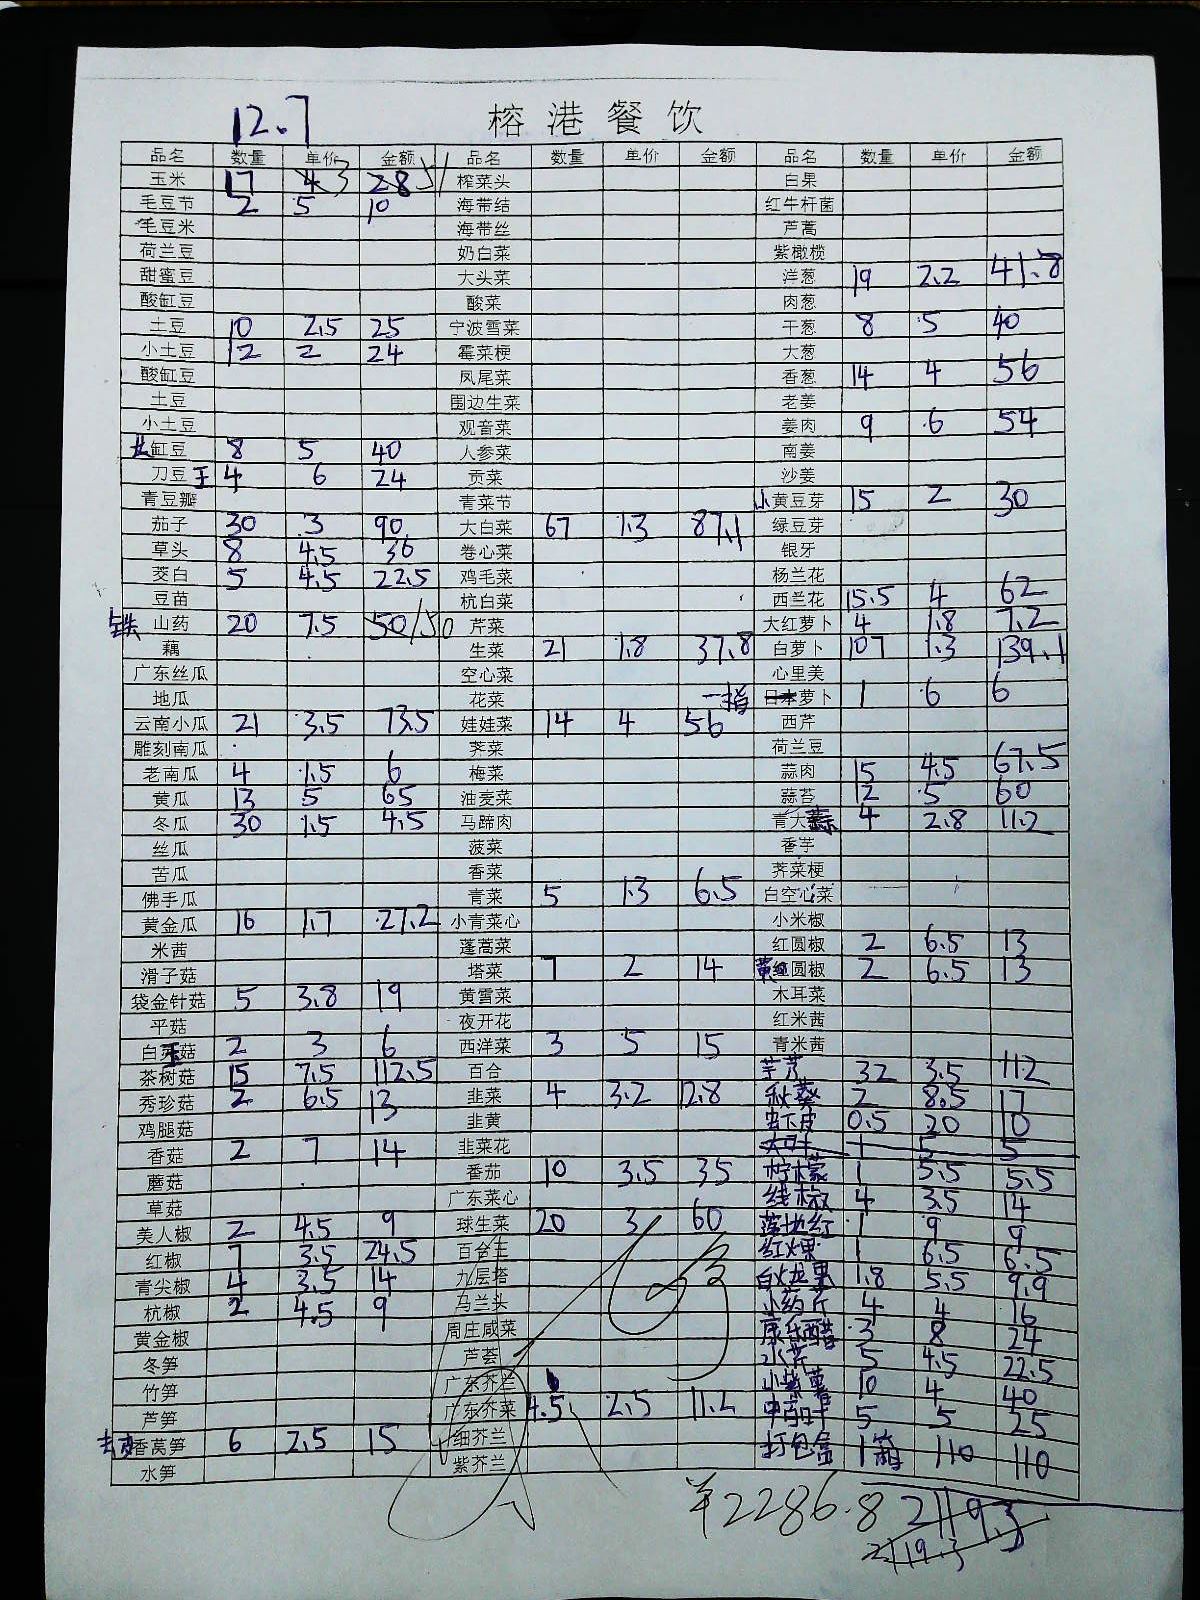 12.7
榕港餐饮
品名 数量 单价 金额 品名 数量 单价 金额 品名 数量 单价 金额
玉米 17 4 3 28 51 榨菜头 白果
毛豆节 2 5 10 海带结 红牛杆菌
毛豆米 海带丝 芦蒿
荷兰豆 奶白菜 紫橄榄
甜蜜豆 大头菜 洋葱 19 2.2 41.8
酸缸豆 酸菜 肉葱
土豆 10 2.5 25 宁波雪菜 干葱 8 5 40
小土豆 12 2 24 霉菜梗 大葱
酸缸豆 凤尾菜 香葱 14 4 56
土豆 围边生菜 老姜
小土豆 观音菜 姜肉 9 6 54
缸豆 8 5 40 人参菜 南姜
刀豆王 4 6 24 贡菜 沙姜
青豆瓣 青菜节 小黄豆芽 15 2 30
茄子 30 3 90 大白菜 67 1.3 87.1 绿豆芽
草头 8 4.5 36 卷心菜 银牙
茭白 5 4.5 22.5 鸡毛菜 杨兰花
豆苗 杭白菜 西兰花 15.5 4 62
铁山药 20 7.5 50 150 芹菜 大红萝卜 4 1.8 7.2
藕 生菜 21 1.8 37.8 白萝卜 107 1.3 139.1
广东丝瓜 空心菜 心里美
地瓜 花菜 一指日本萝卜 1 6 6
云南小瓜 21 3.5 73.5 娃娃菜 14 4 56 西芹
雕刻南瓜 荠菜 荷兰豆
老南瓜 4 1.5 6 梅菜 蒜肉 15 4.5 67.5
黄瓜 13 5 65 油麦菜 蒜苔 12 5 60
冬瓜 30 1.5 4.5 马蹄肉 青大蒜 4 2.8 11.2
丝瓜 菠菜 香芋
苦瓜 香菜 荠菜梗
佛手瓜 青菜 5 1.3 6.5 白空心菜
黄金瓜 16 1.7 27.2 小青菜心 小米椒
米茜 蓬蒿菜 红圆椒 2 6.5 13
滑子菇 塔菜 7 2 14 黄圆椒 2 6.5 13
袋金针菇 5 3.8 19 黄雪菜 木耳菜
平菇 夜开花 红米茜
白玉菇 2 3 6 西洋菜 3 5 15 青米茜
茶树菇 15 7.5 112.5 百合 芋艿 32 3.5 112
秀珍菇 2 6.5 13 韭菜 4 3.2 12.8 秋葵 2 8.5 17
鸡腿菇 韭黄 虾皮 0.5 20 10
香菇 2 7 14 韭菜花 1 5 5
蘑菇 番茄 10 3.5 35 柠檬 1 5.5 5.5
草菇 广东菜心 线椒 4 3.5 14
美人椒 2 4.5 9 球生菜 20 3 60 落地红 1 9 9
红椒 7 3.5 24.5 百合王 红果 1 6.5 6.5
青尖椒 4 3.5 14 九层塔 白火龙果 1.8 5.5 9.9
杭椒 2 4.5 9 马兰头 小药芹 4 4 16
黄金椒 周庄咸菜 康乐醋 3 8 24
冬笋 芦荟 水芹 5 4.5 22.5
竹笋 广东芥兰 小紫薯 10 4 40
芦笋 广东芥菜 4.5 2.5 11.2 中百叶 5 5 25
去皮香莴笋 6 2.5 15 细芥兰 打包盒 1箱 110 110
水笋 紫芥兰
¥2286.8 2119.3
2119.3